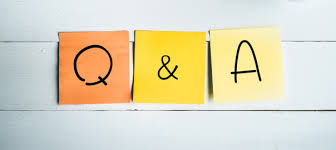 Q & A